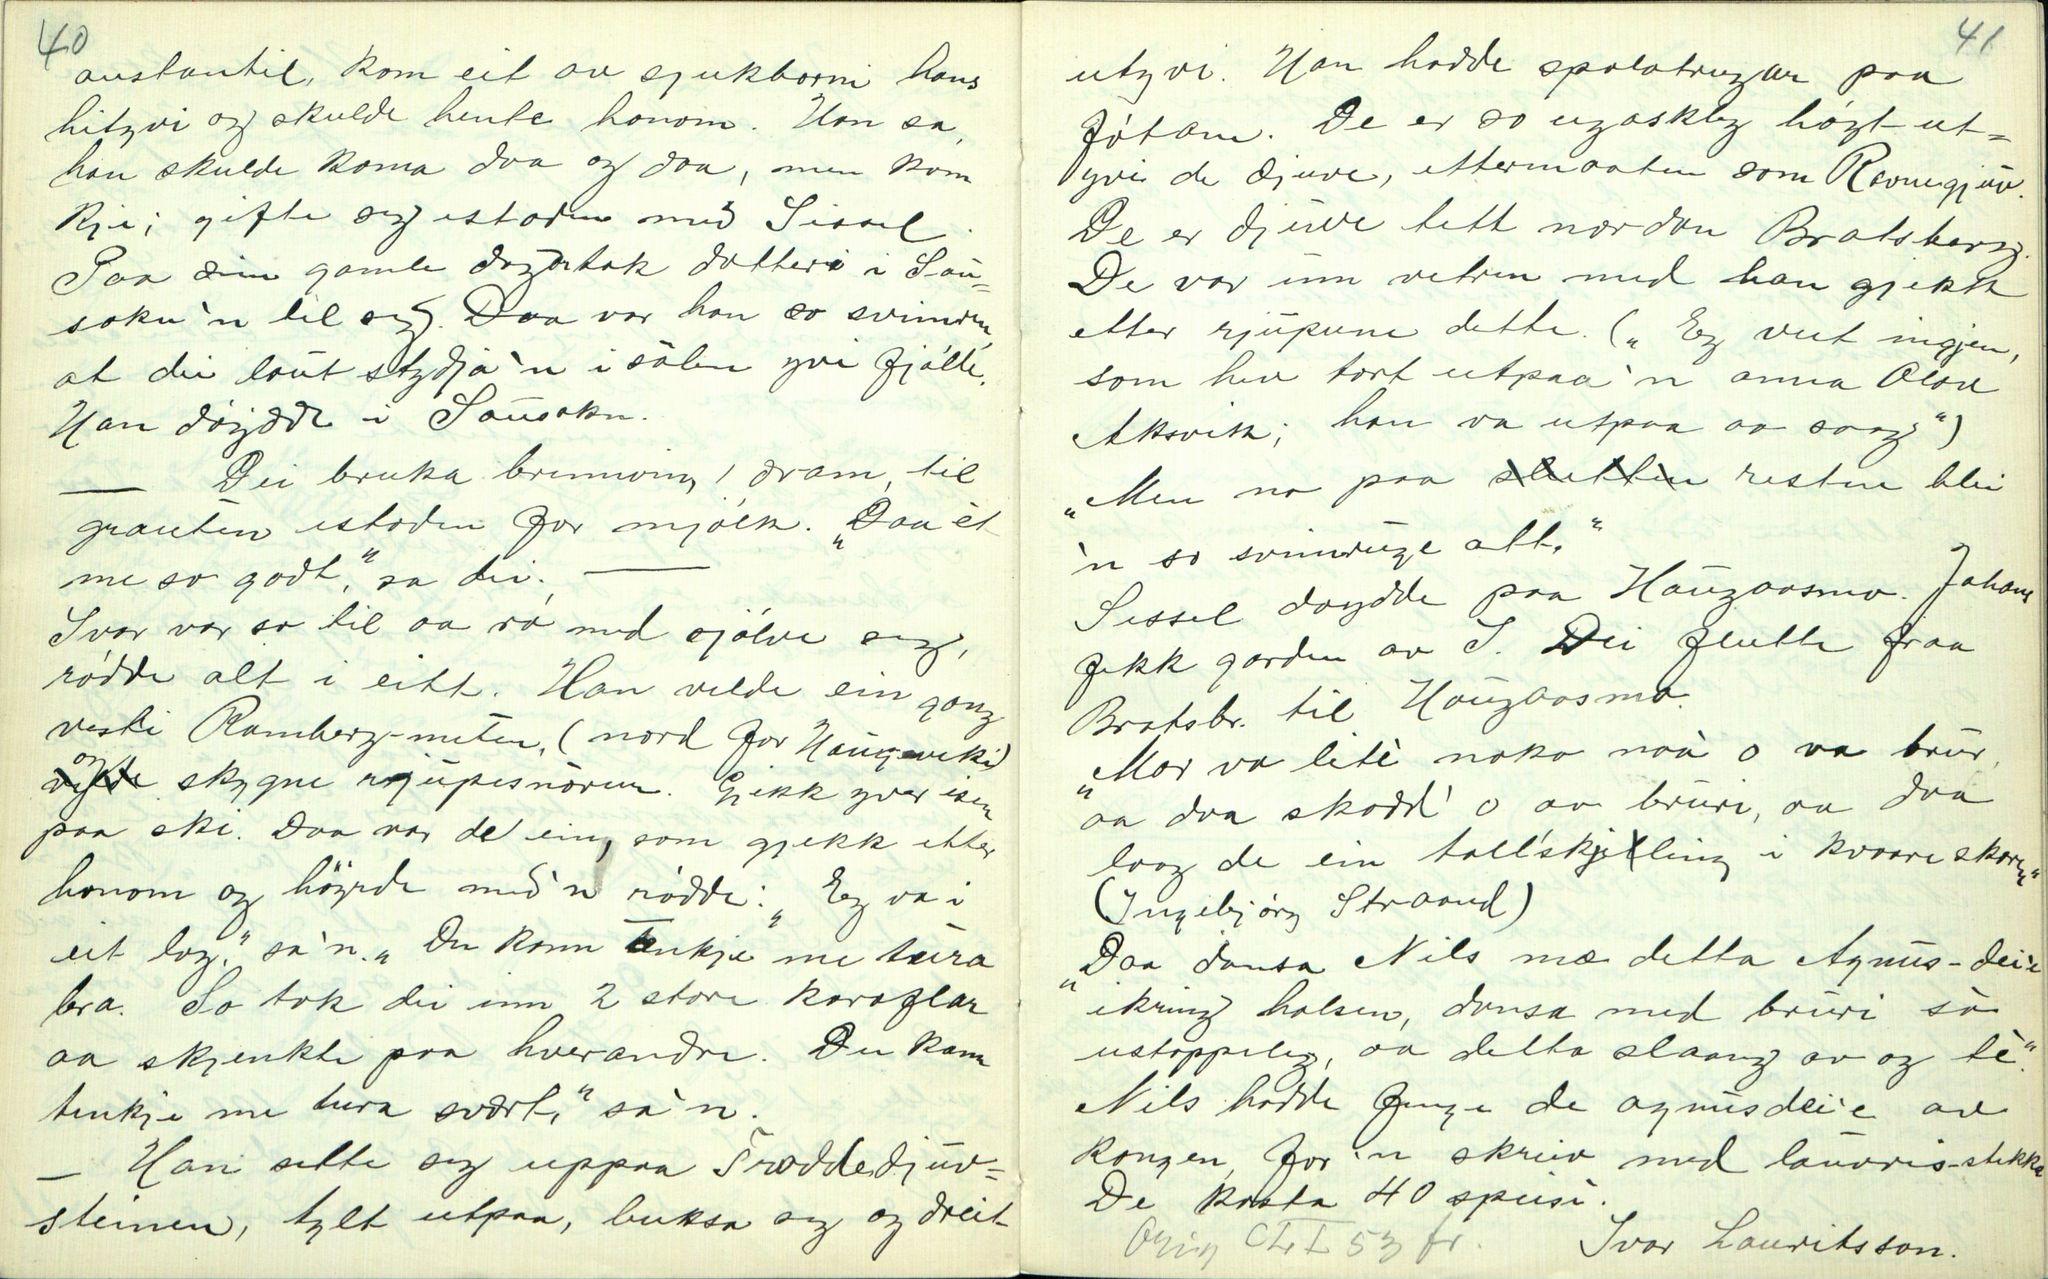 40
austantil, kom eit av sjukborni hans
hityvi og skulde hente honom. Han sa,
han skulde koma daa og daa, men kom
kje; gifte seg istaden med Sissel.
Paa sine gamle dagar tok dotteri i Sau-
sokn'n til seg. Daa var han so svimren,
at dei laut stydja'n i sålen yvi fjølle.
Han døydde i Sausokn.
— Dei bruka brennvin, dram, til
grauten istaden for mjølk. "Daa èt
me so godt," sa dei. —
Ivar var so til aa rø med sjølve seg,
rødde alt i eitt. Han vilde ein gong
vesti Ramberg-nuten, (nord for Haugeviki)
og skygne rjupesnórur. Gjekk yver isen
paa ski. Daa var de ein, som gjekk etter
honom og høyrde med'n rødde: "Eg va i
eit lag," sa'n. "Du kann tenkje me tura
bra. So tok dei inn 2 store karaflar
aa skjenkte paa hverandre. Du kann
tenkje me tura svært," sa'n.
— Han sette seg uppaa Trøddedjuv-
steinen, tylt utpaa, buksa seg og dreit
41
utyvi. Han hadde spalatrugar paa
føtane. De er so ugaskleg høgt ut-
yvi de djuve, ettermaaten som Ravnegjuv.
De er djuve tett nordan Bratsberg.
De var um vetren med han gjekk
etter rjupune dette. ("Eg veit ingjen,
som hev tort utpaa'n anna Olav
Aksvik; han va utpaa aa saag")
"Men no paa slutten resten blei
'n so svimruge att."
Sissel døydde paa Haugaasmo. Johans
fekk garden av S. Dei flutte fraa
Bratsbr. til Haugaasmo.
"Mor va litè noko naa o va brur,
aa daa skodd' o av bruri, aa daa
laag de ein tall'skjelling i kvaare skoren"
(Ingebjørg Straand)
"Daa dansa Nils mæ detta Agnus-dei'e
ikring halsen, dansa med bruri so
ustoppeleg, aa detta slaang av og tè."
Nils hadde fenge de agnusdei'e av
kongen, for'n skreiv med lauvris-stikka
De kosta 40 speisi.
Ivar Lauritsson.